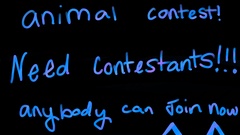 animal contest!
Need contestants!!!
anybody can Join now